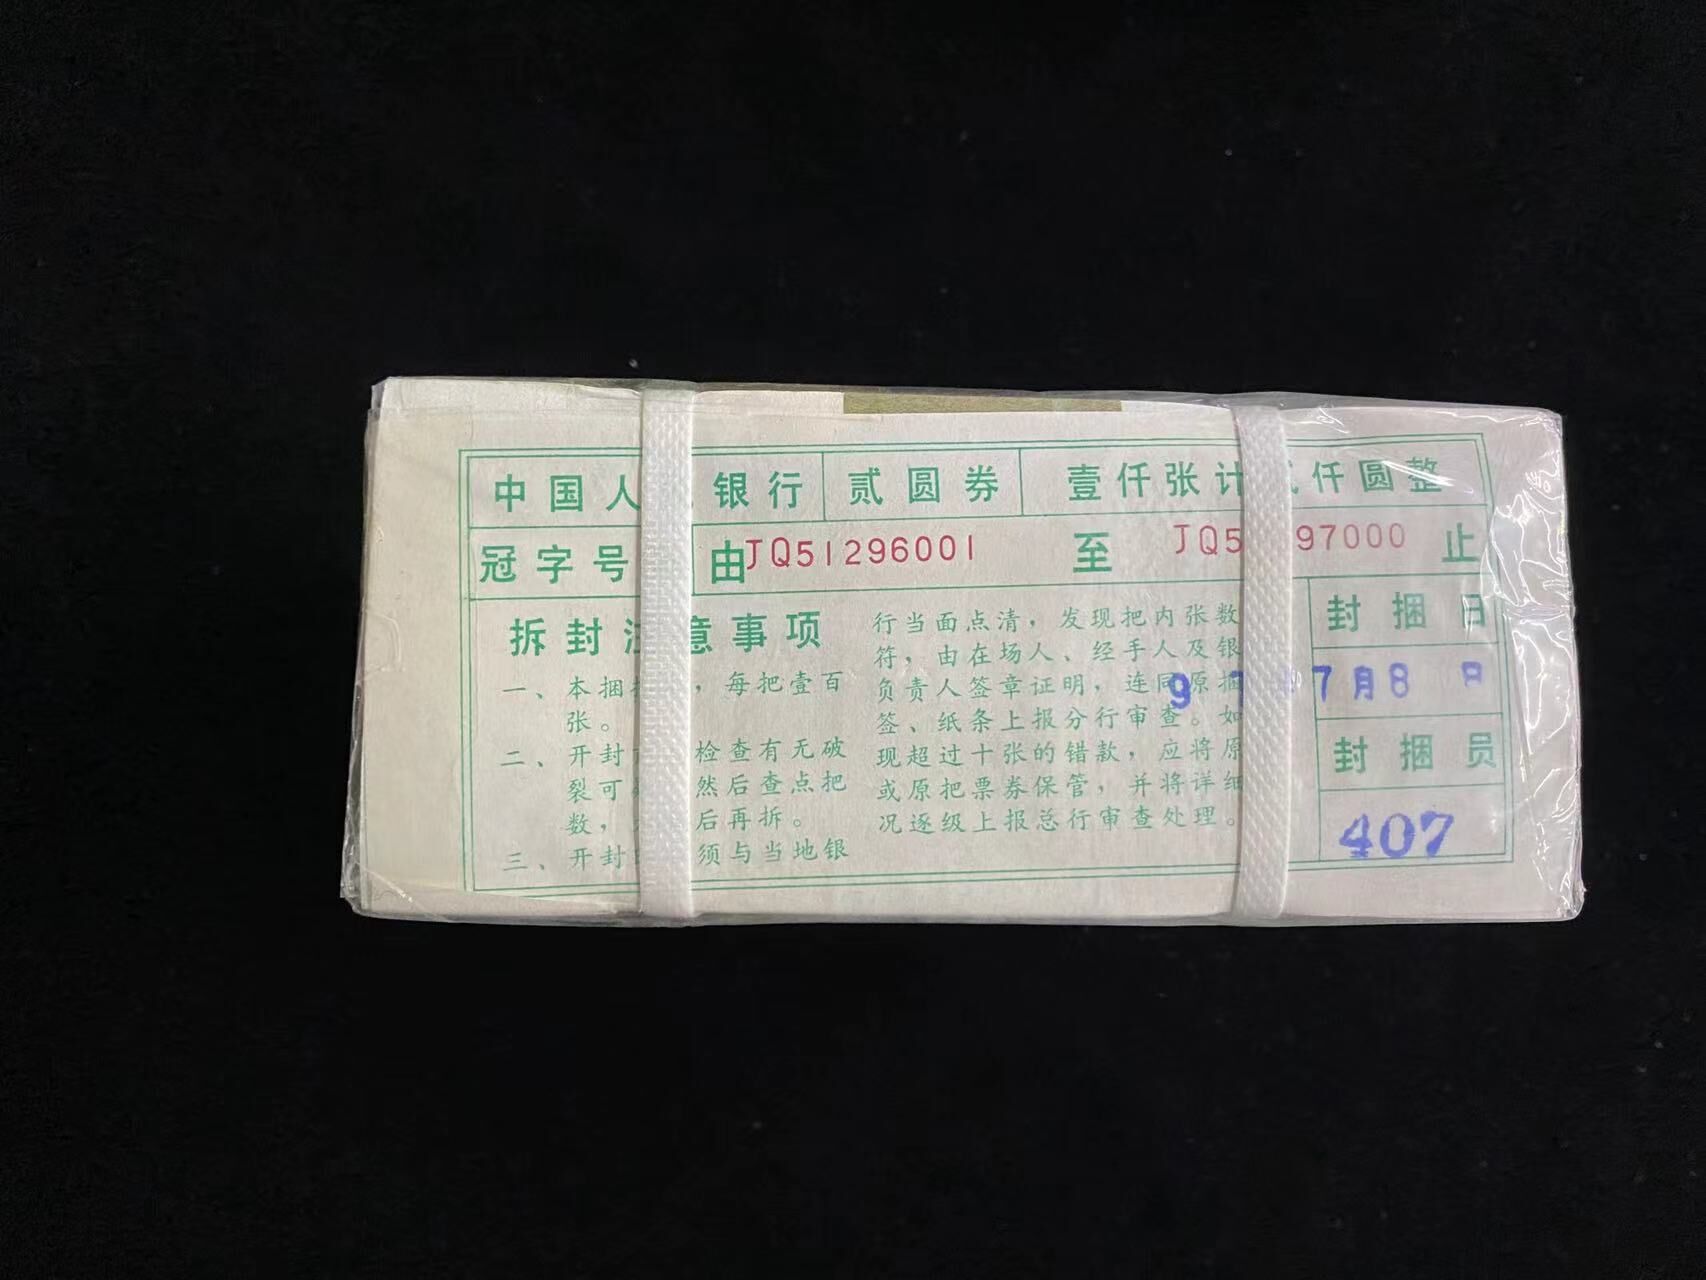 中国人 银行 贰圆券 壹仟张计 仟圆整
冠字号 由JQ51296001 至 JQ5 97000 止
拆封 意事项
一、本捆 ，每把壹百
张。
二、开封 检查有无破
裂可 然后查点把
数， 后再拆。
三、开封 须与当地银
行当面点清，发现把内张数
符，由在场人、经手人及银
负责人签章证明，连同原捆
签、纸条上报分行审查。如
现超过十张的错款，应将原
或原把票券保管，并将详细
况逐级上报总行审查处理。
封捆日
9 7月8日
封捆员
407